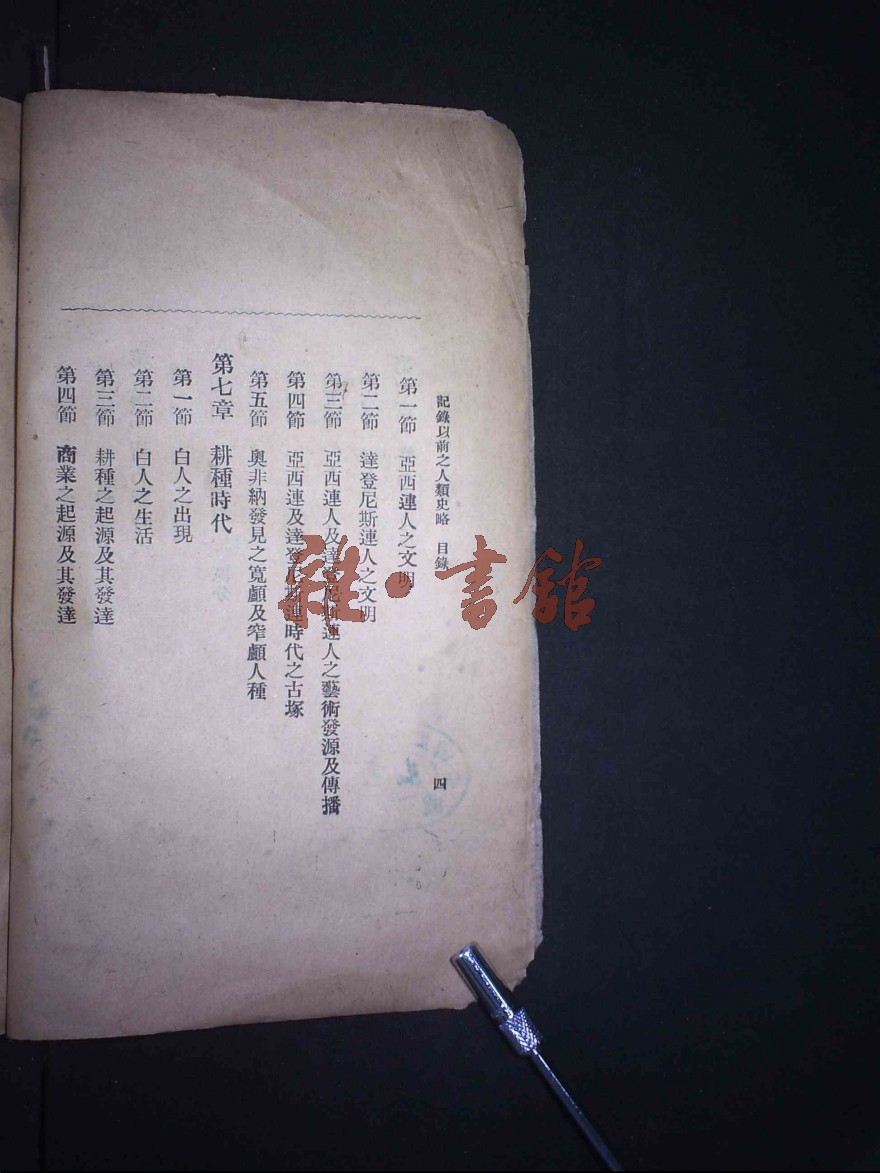 記錄以前之人類史略 目錄 四
第一節 亞西連人之文明
第二節 達登尼斯連人之文明
第三節 亞西連人及達登尼斯連人之藝術發源及傳播
第四節 亞西連及達登尼斯連時代之古塚
第五節 奧非納發見之寬顱及窄顱人種
第七章 耕種時代
第一節 白人之出現
第二節 白人之生活
第三節 耕種之起源及其發達
第四節 商業之起源及其發達
雜·書館